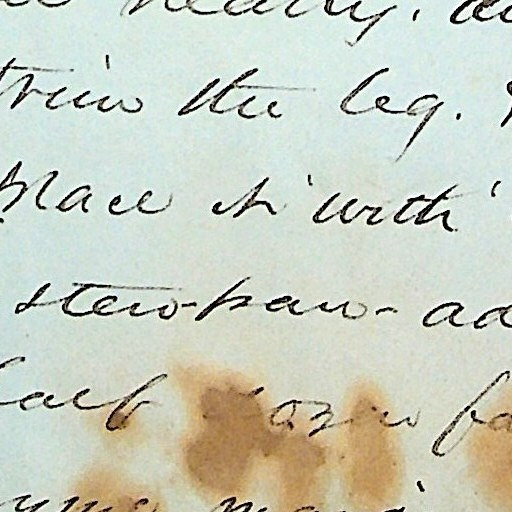 neatly.
trim the leg.
place it with
stew-pan - ad
half dozen